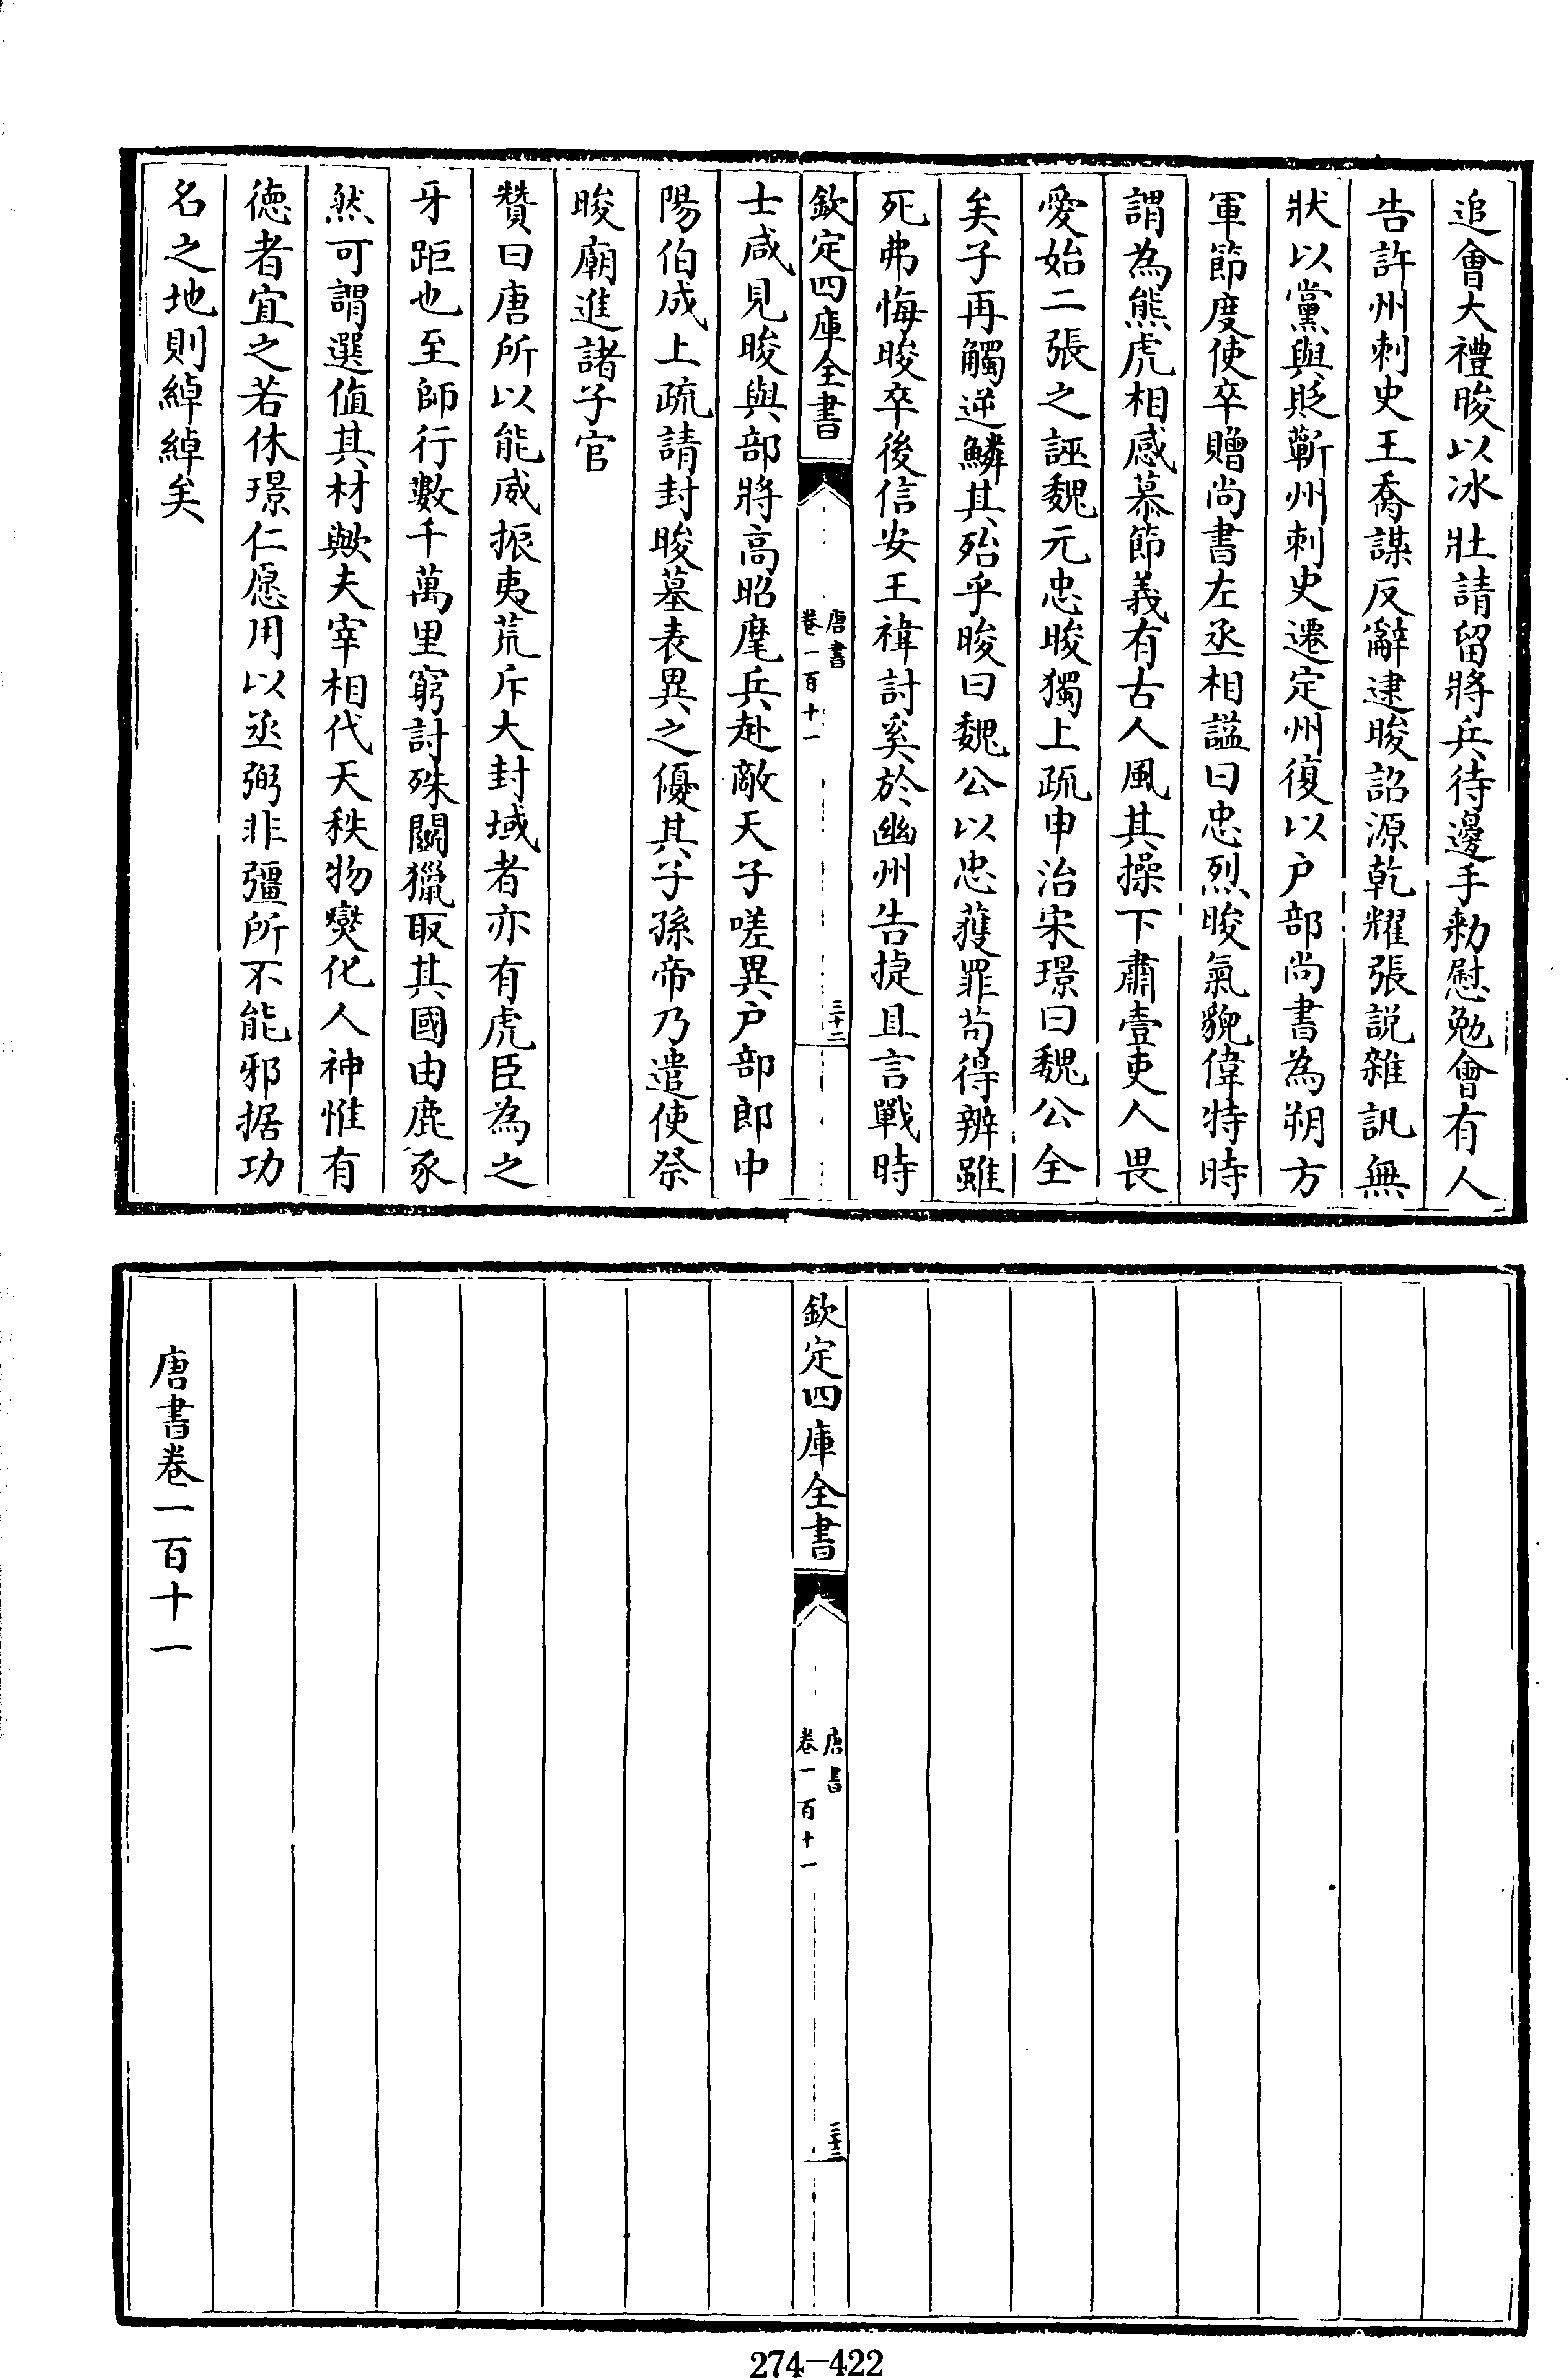 追會大禮晙以冰壯請留將兵待邊手勅慰勉會有人
告許州刺史王喬謀反辭逮晙詔源乾耀張說雜訊無
狀以黨與貶蘄州刺史遷定州復以户部尚書為朔方
軍節度使卒贈尚書左丞相謚曰忠烈晙氣貌偉特時
謂為熊虎相感慕節義有古人風其操下肅壹吏人畏
愛始二張之誣魏元忠晙獨上疏申治宋璟曰魏公全
矣子再觸逆鱗其殆乎晙曰魏公以忠獲罪茍得辨雖
死弗悔晙卒後信安王禕討奚於幽州告捷且言戰時
欽定四庫全書
唐書
卷一百十一
三十二
士咸見晙與部將高昭麾兵赴敵天子嗟異户部郎中
陽伯成上疏請封晙墓表異之優其子孫帝乃遣使祭
晙廟進諸子官
贊曰唐所以能威振夷荒斥大封域者亦有虎臣為之
牙距也至師行數千萬里窮討殊鬬獵取其國由鹿豕
然可謂選值其材歟夫宰相代天秩物燮化人神惟有
徳者宜之若休璟仁愿用以丞弼非彊所不能邪据功
名之地則綽綽矣
欽定四庫全書
唐書
卷一百十一
三十三
唐書卷一百十一
274-422